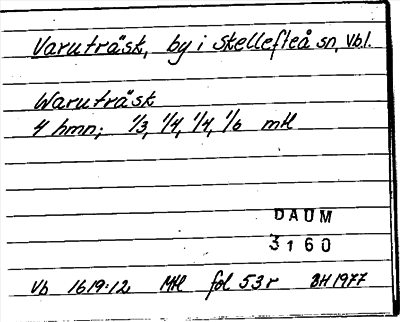 Varuträsk, by i Skellefteå sn, Vbl.
Waruträsk
4 hmn; 1/3, 1/4, 1/4, 1/6 mtl
DAUM
3160
Vb 1619:12 Mtl fol 53r BH 1977